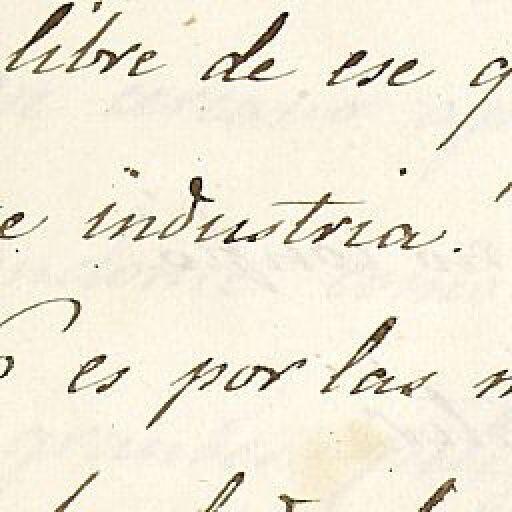 libre de ese
industria.
es por las